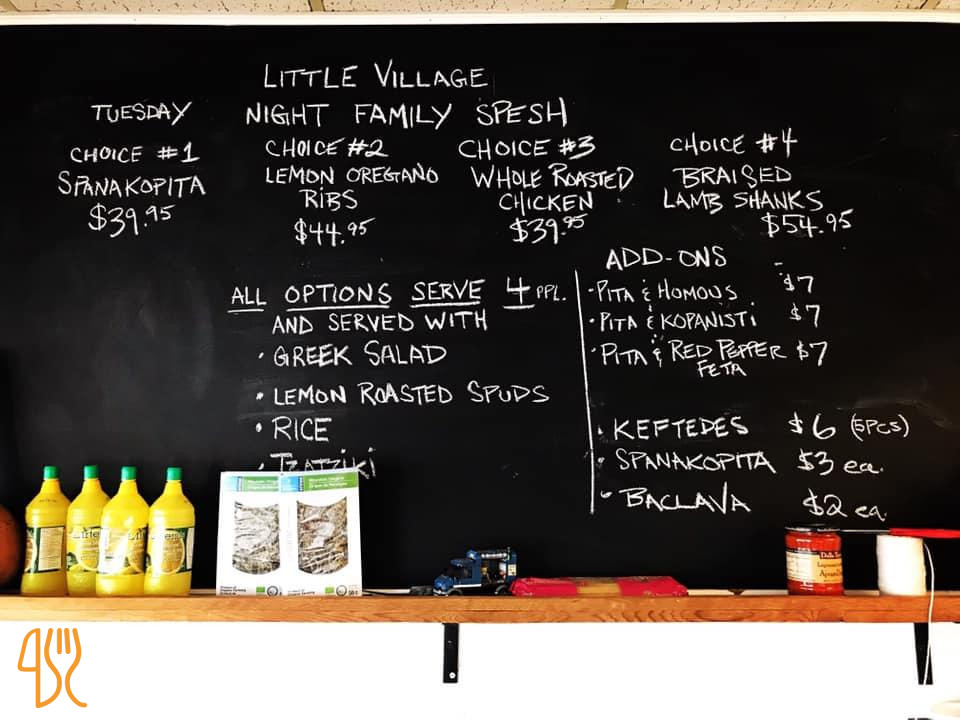 LITTLE VILLAGE
TUESDAY NIGHT FAMILY SPESH
CHOICE #1
SPANAKOPITA
$39.95
CHOICE #2
LEMON OREGANO
RIBS
$44.95
CHOICE #3
WHOLE ROASTED
CHICKEN
$39.95
CHOICE #4
BRAISED
LAMB SHANKS
$54.95
ALL OPTIONS SERVE 4 PPL.
AND SERVED WITH
• GREEK SALAD
• LEMON ROASTED SPUDS
• RICE
• TZATZIKI
ADD-ONS
• PITA & HOMOUS $7
• PITA & KOPANISTI $7
• PITA & RED PEPPER $7
FETA
• KEFTEDES $6 (5PCS)
• SPANAKOPITA $3 ea.
• BACLAVA $2 ea.